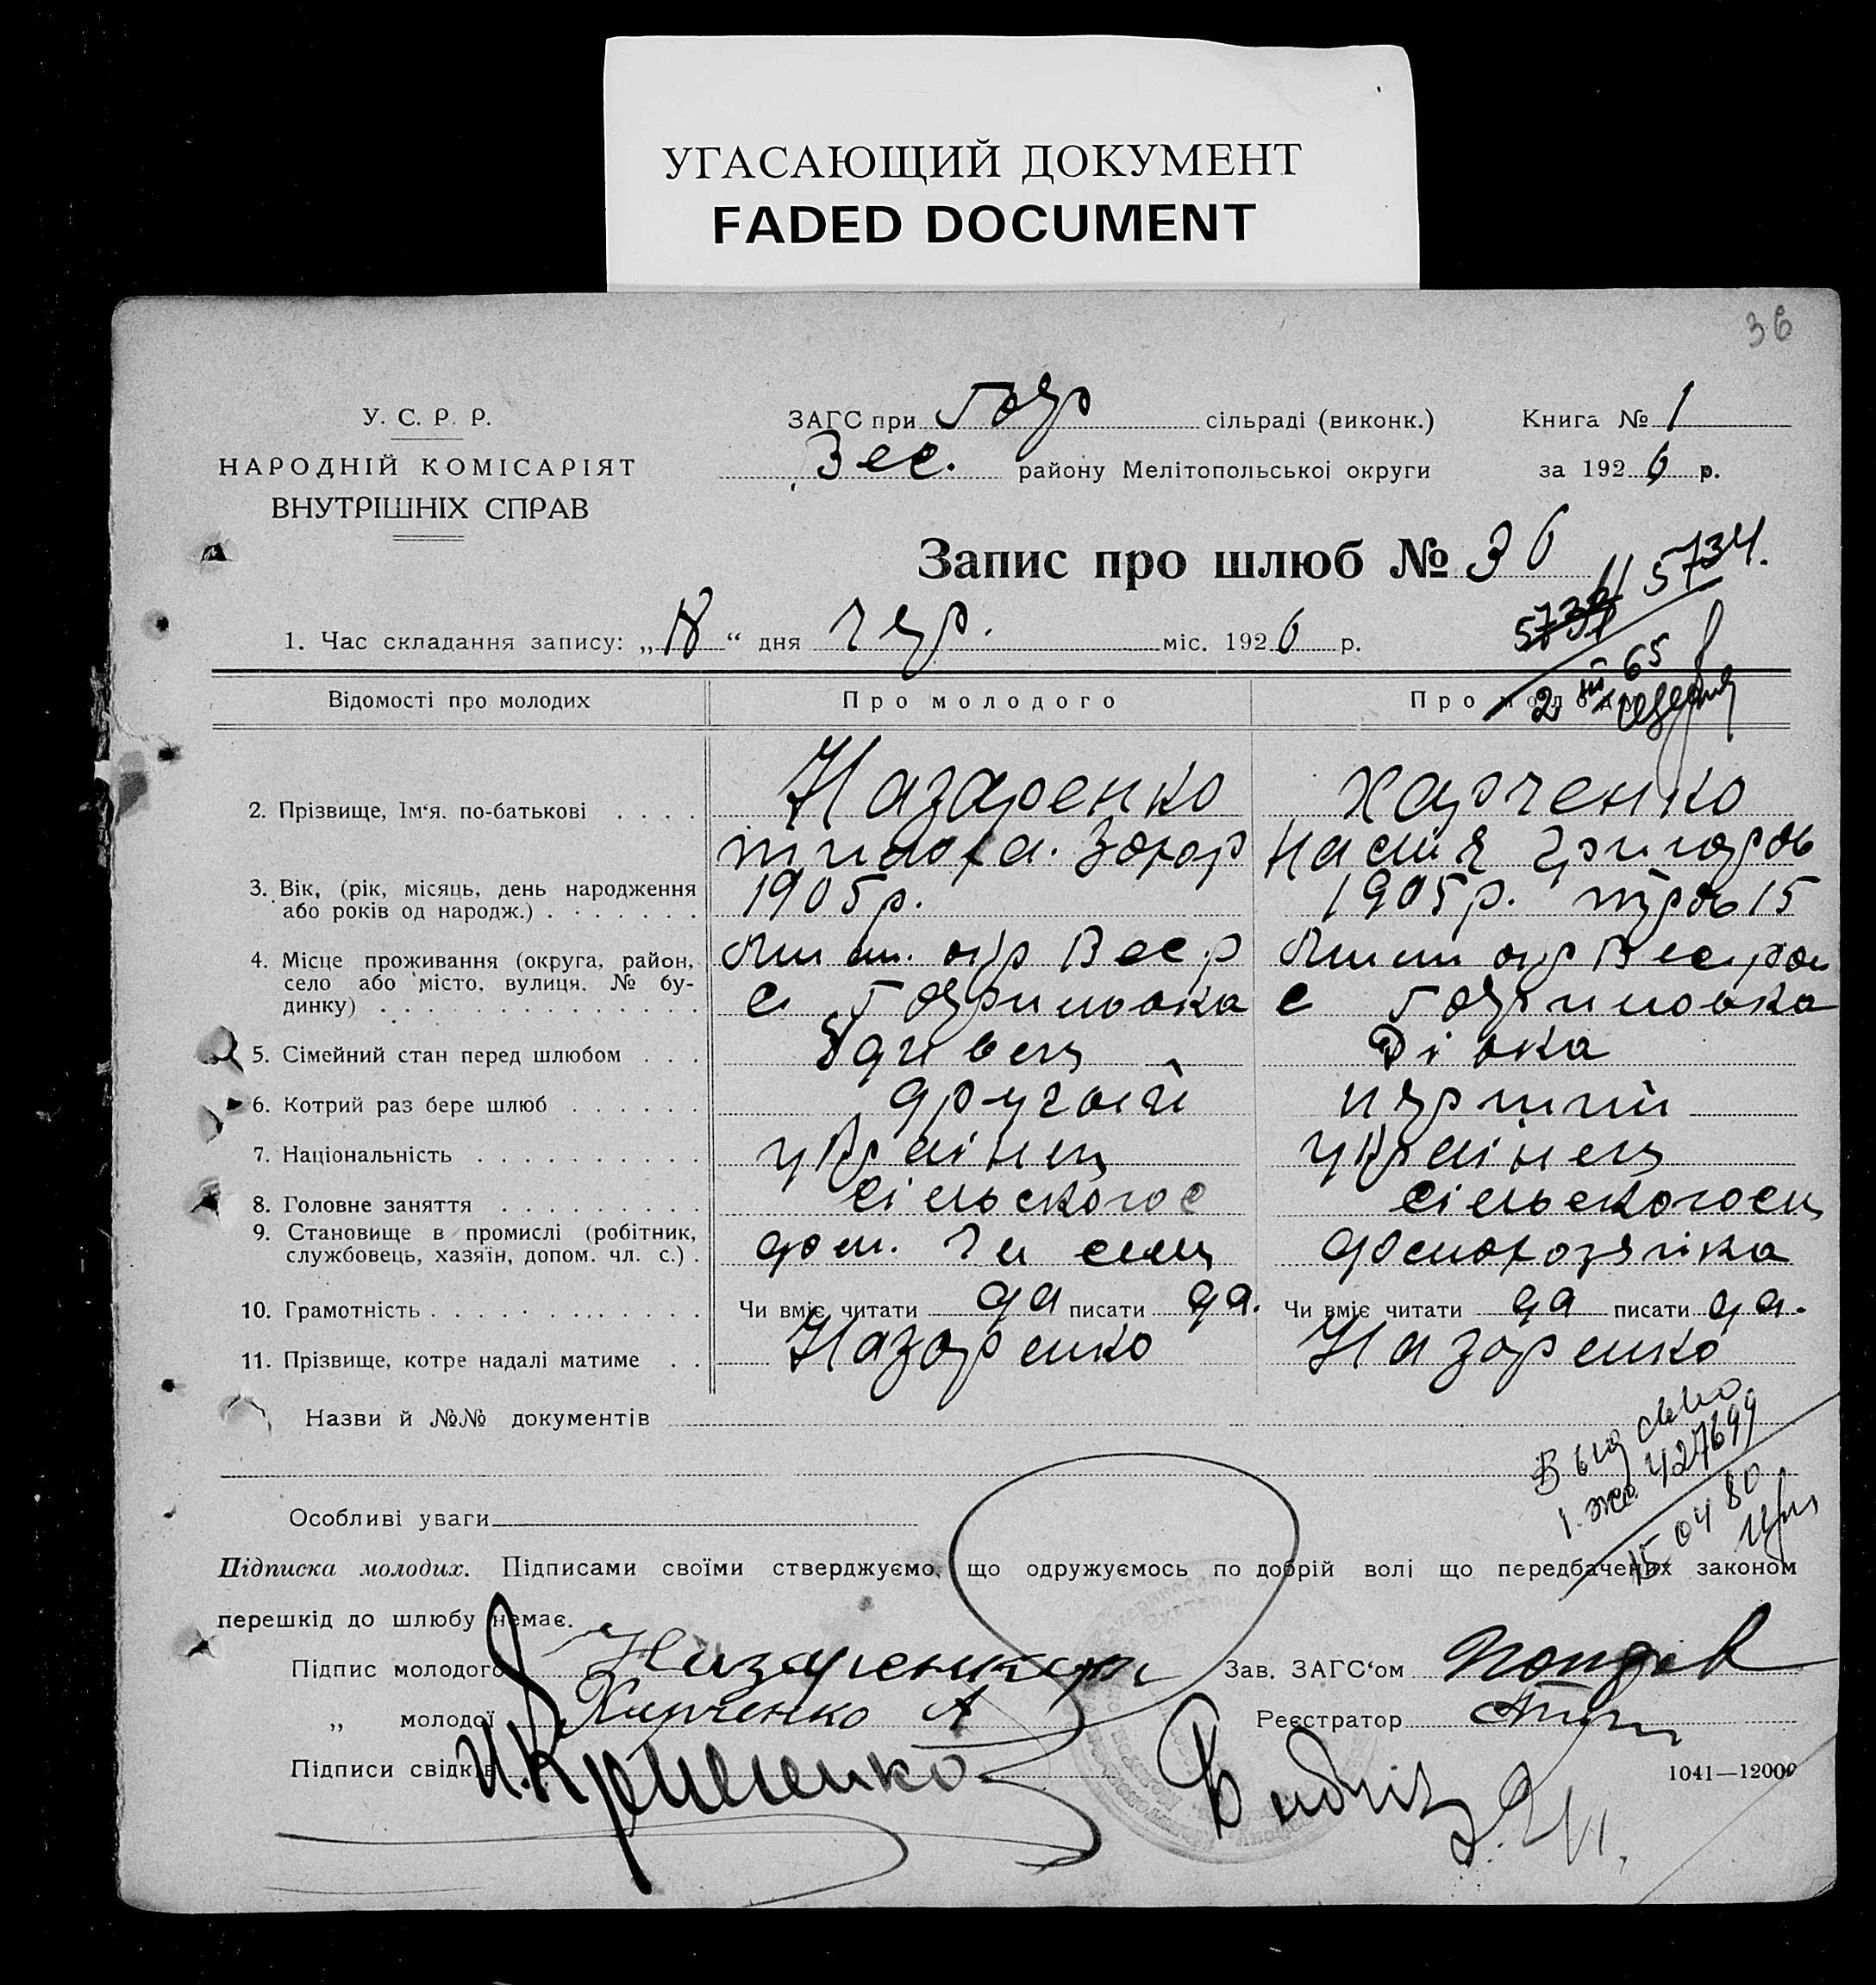 УГАСАЮЩИЙ ДОКУМЕНТ
FADED DOCUMENT
36
У. С. Р. Р.
НАРОДНІЙ КОМІСАРІЯТ
ВНУТРІШНІХ СПРАВ
ЗАГС при Гавр сільраді (виконк.)
Вес. району Мелітопольської округи
Книга № 1
за 1926 р.
Запис про шлюб № 36
5734.
1. Час складання запису: „18“ дня чер. міс. 1926 р.
2 III 65
Відомості про молодих Про молодого Про молоду
2. Прізвище, Ім‘я, по-батькові Назаренко Харченко
Захар Настя Григоров
3. Вік, (рік, місяць, день народження або років од народж.) 1905р. 1905р. 15
4. Місце проживання (округа, район, село або місто, вулиця, № будинку) Мит. окр Вес р Мит окр Вес рай
с Гавриловка с Гавриловка
5. Сімейний стан перед шлюбом Вдивец Дівка
6. Котрий раз бере шлюб другий перший
7. Національність українец українец
8. Головне заняття сільскогос сільскогосп
9. Становище в промислі (робітник, службовець, хазяїн, допом. чл. с.) доп. чл сем домохозяйка
10. Грамотність Чи вміє читати да писати да. Чи вміє читати да писати да.
11. Прізвище, котре надалі матиме Назаренко Назаренко
Назви й №№ документів
Выд св-во
427699
15 04 80
Особливі уваги
Підписка молодих. Підписами своїми стверджуємо, що одружуємось по добрій волі що передбачених законом
перешкід до шлюбу немає.
Підпис молодого Назаренко
Зав. ЗАГС‘ом
„ молодої Харченко А
Реєстратор
Підписи свідків
1041—12000